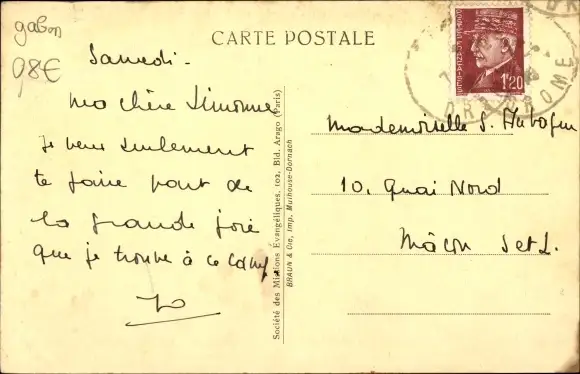 gabon
98€
CARTE POSTALE
Samedi -
Ma chère Simonne
je veux seulement
te faire part de
la grande joie
que je trouve à ce camp.
Société des Missions Evangéliques, 102, Bld. Arago (Paris)
BRAUN & Cie, Imp. Mulhouse-Dornach
1F20
DROME
Mademoiselle S.
10. Quai Nord
Mâcon S et L.